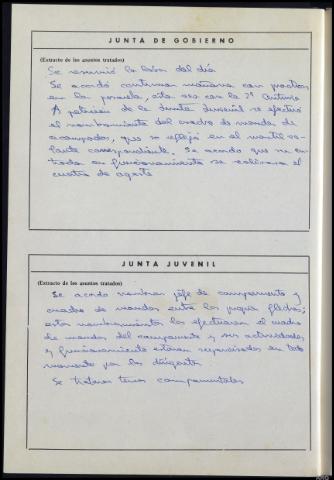 JUNTA DE GOBIERNO
(Extracto de los asuntos tratados)
Se resumió la labor del día
Se acordó continuar mañana con practicas
en la parcela, esta vez con la 2ª Centuria
A petición de la Junta Juvenil se efectuó
el nombramiento del cuadro de mandos de
acampados, que se reflejó en el mural vo-
lante correspondiente. Se acordó que su en-
trada en funcionamiento se realizara el
cuatro de agosto
JUNTA JUVENIL
(Extracto de los asuntos tratados)
Se acordo nombrar jefe de campamento y
cuadro de mandos entre los propios flechas;
estos nombramientos los efectuaron el cuadro
de mandos del campamento y sus actividades
y funcionamiento estaran supervisados en todo
momento por los dirigentes
Se trataron temas campamentales